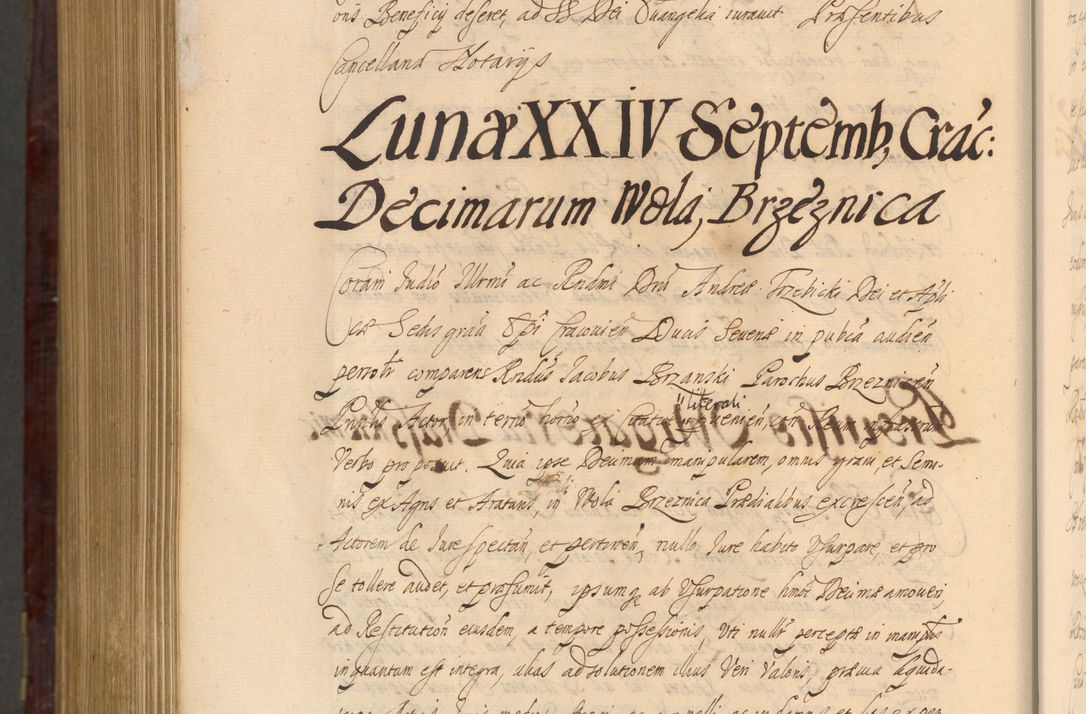 onis Beneficij deseret, ad SS Dei Evangelia iuravit Præsentibus
Cancellariæ Notarijs
Lunæ XXIV Septemb, Crac:
Decimarum Wola, Brzeznica
Coram Judió Illrmi ac Rndmi Dni Andreæ Trzebicki Dei et Apli
cæ Sedis gratia Epi Cracovien Ducis Severiæ in publica audien
personlr comparens Rndus Jacobus Brzanski Parochus Breznicen
Prnplis Actor in termo horno ex Citatione literali venien, ctra Reum
Verbo proposuit. Quia ipse Decimam manipularem, omnis grani, et Semi-
nis ex Agris et Araturis, in Wola Brzeznica Prædialibus excrescen, ad
Actorem de Jure spectan, et pertinen, nullo Jure habito Usurpare, et pro
se tollere audet, et præsumit, ipsumq ab Usurpatione hmoi Decimæ amoveri,
ad Restitutión eiusdem, a tempore possessionis, Uti nullr perceptæ in manipulis
inquantum est integra, alias ad solutionem illius Veri Valoris, prævia liquida-